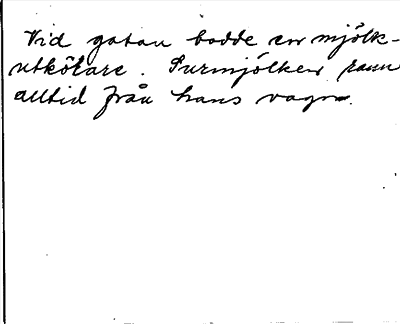 Vid gatan bodde en mjölk-
utkörare. Surmjölken rann
alltid från hans vagn.